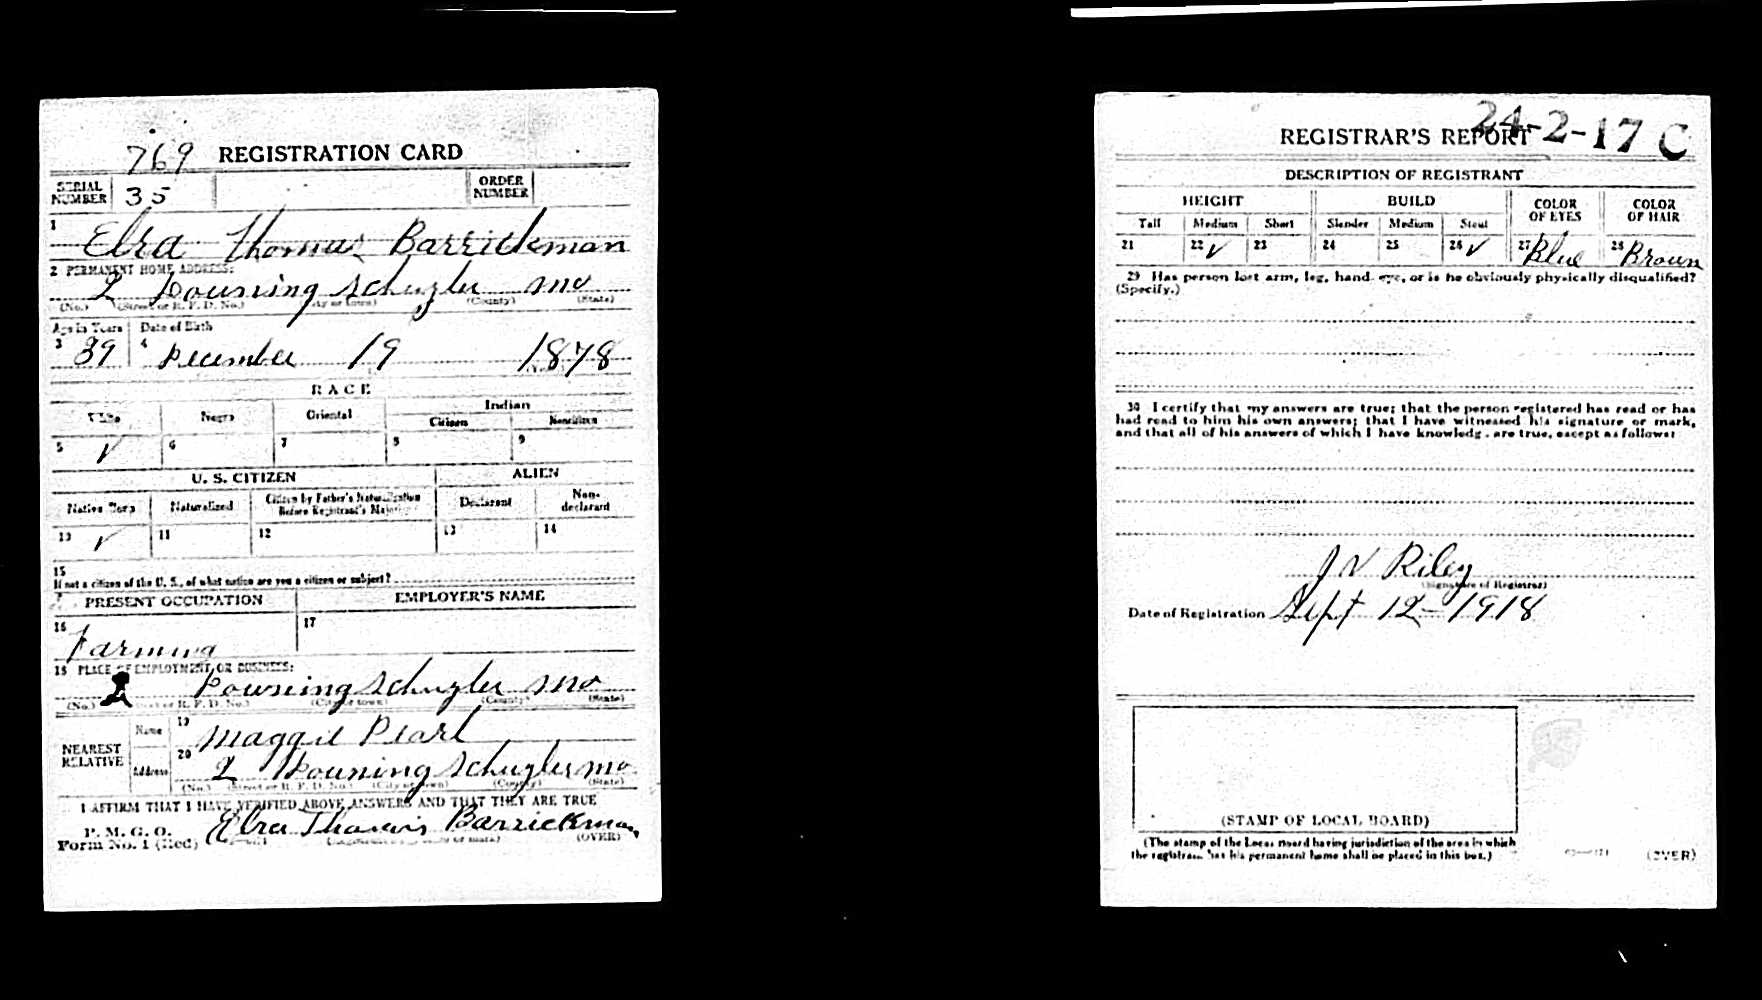 769 REGISTRATION CARD
SERIAL NUMBER 35 ORDER NUMBER
1 Elra Thomas Barrickman
2 PERMANENT HOME ADDRESS:
2 Downing Schuyler Mo
(No.) (Street or R. F. D. No.) (City or town) (County) (State)
Age in Years Date of Birth
3 39 4 December 19 1878
RACE
White Negro Oriental Indian
Citizen Noncitizen
5 ✓ 6 7 8 9
U. S. CITIZEN ALIEN
Native Born Naturalized Citizen by Father's Naturalization Before Registrant's Majority Declarant Non-declarant
10 ✓ 11 12 13 14
15
If not a citizen of the U. S., of what nation are you a citizen or subject?
PRESENT OCCUPATION EMPLOYER'S NAME
16 Farming 17
18 PLACE OF EMPLOYMENT OR BUSINESS:
2 Downing Schuyler Mo
(No.) (Street or R. F. D. No.) (City or town) (County) (State)
NEAREST RELATIVE Name 19 Maggie Pearl
Address 20 2 Downing Schuyler Mo
(No.) (Street or R. F. D. No.) (City or town) (County) (State)
I AFFIRM THAT I HAVE VERIFIED ABOVE ANSWERS AND THAT THEY ARE TRUE
P. M. G. O.
Form No. 1 (Red) Elra Thomas Barrickman
(Registrant's signature or mark) (OVER)
24-2-17 C
REGISTRAR'S REPORT
DESCRIPTION OF REGISTRANT
HEIGHT BUILD COLOR OF EYES COLOR OF HAIR
Tall Medium Short Slender Medium Stout
21 22 ✓ 23 24 25 26 ✓ 27 Blue 28 Brown
29 Has person lost arm, leg, hand, eye, or is he obviously physically disqualified?
(Specify.)
30 I certify that my answers are true; that the person registered has read or has
had read to him his own answers; that I have witnessed his signature or mark,
and that all of his answers of which I have knowledge are true, except as follows:
J V Riley
(Signature of Registrar)
Date of Registration Sept 12-1918
(STAMP OF LOCAL BOARD)
(The stamp of the Local Board having jurisdiction of the area in which
the registrant has his permanent home shall be placed in this box.)
(OVER)